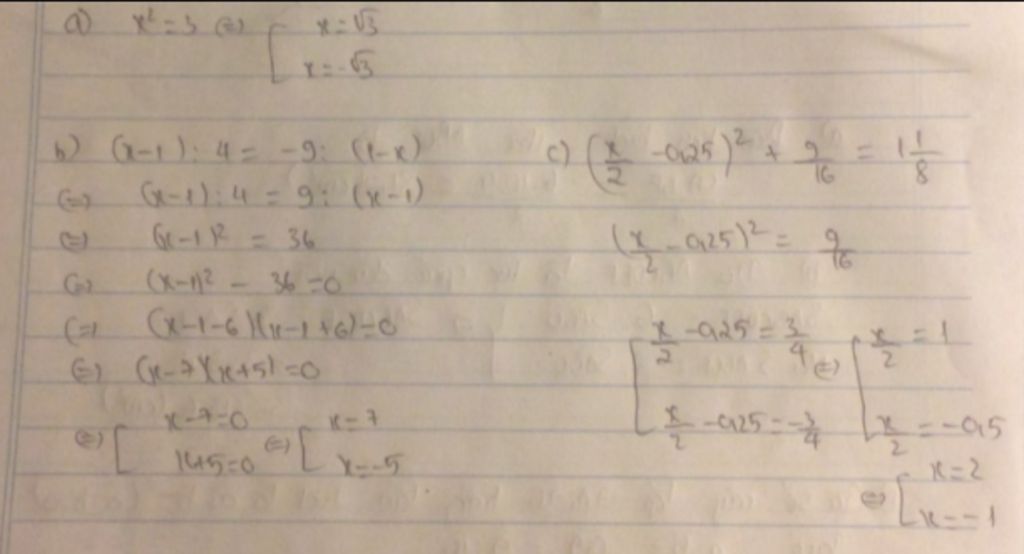 a) x² = 3 (=) [ x = √3
x = -√3
b) (x-1) : 4 = -9 : (1-x)
(=) (x-1) : 4 = 9 : (x-1)
(=) (x-1)² = 36
(=) (x-1)² - 36 = 0
(=) (x-1-6)(x-1+6) = 0
(=) (x-7)(x+5) = 0
(=) [ x-7=0 (=) [ x = 7
x+5=0 x = -5
c) (x/2 - 0,25)² + 9/16 = 1 1/8
(x/2 - 0,25)² = 9/16
[ x/2 - 0,25 = 3/4 (=) [ x/2 = 1
x/2 - 0,25 = -3/4 x/2 = -0,5
(=) [ x = 2
x = -1